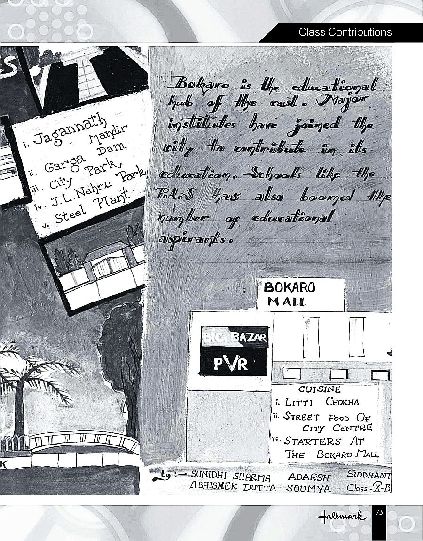 Class Contributions
S
i. Jagannath
Mandir
ii. Garga Dam
iii. City Park
iv. J.L. Nehru Park
v. Steel Plant
Bokaro is the educational
hub of the east. Major
institutes have joined the
city to contribute in its
education. Schools like the
has also boomed the
number of educational
aspirants.
BOKARO
MALL
BIG BAZAR
PVR
CUISINE
i. LITTI CHOKHA
ii. STREET FOOD OF
CITY CENTRE
iii. STARTERS AT
THE BOKARO MALL
K
By :- SUNIDHI SHARMA ADARSH SIDDHANT
ABHISHEK DUTTA SOUMYA Class-
hallmark 73